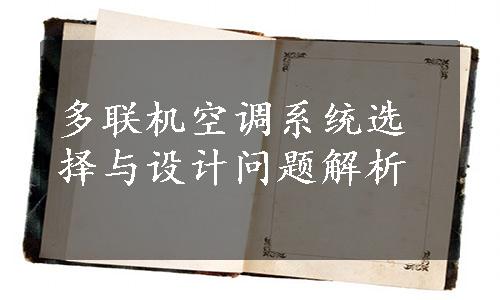 多联机空调系统选
择与设计问题解析